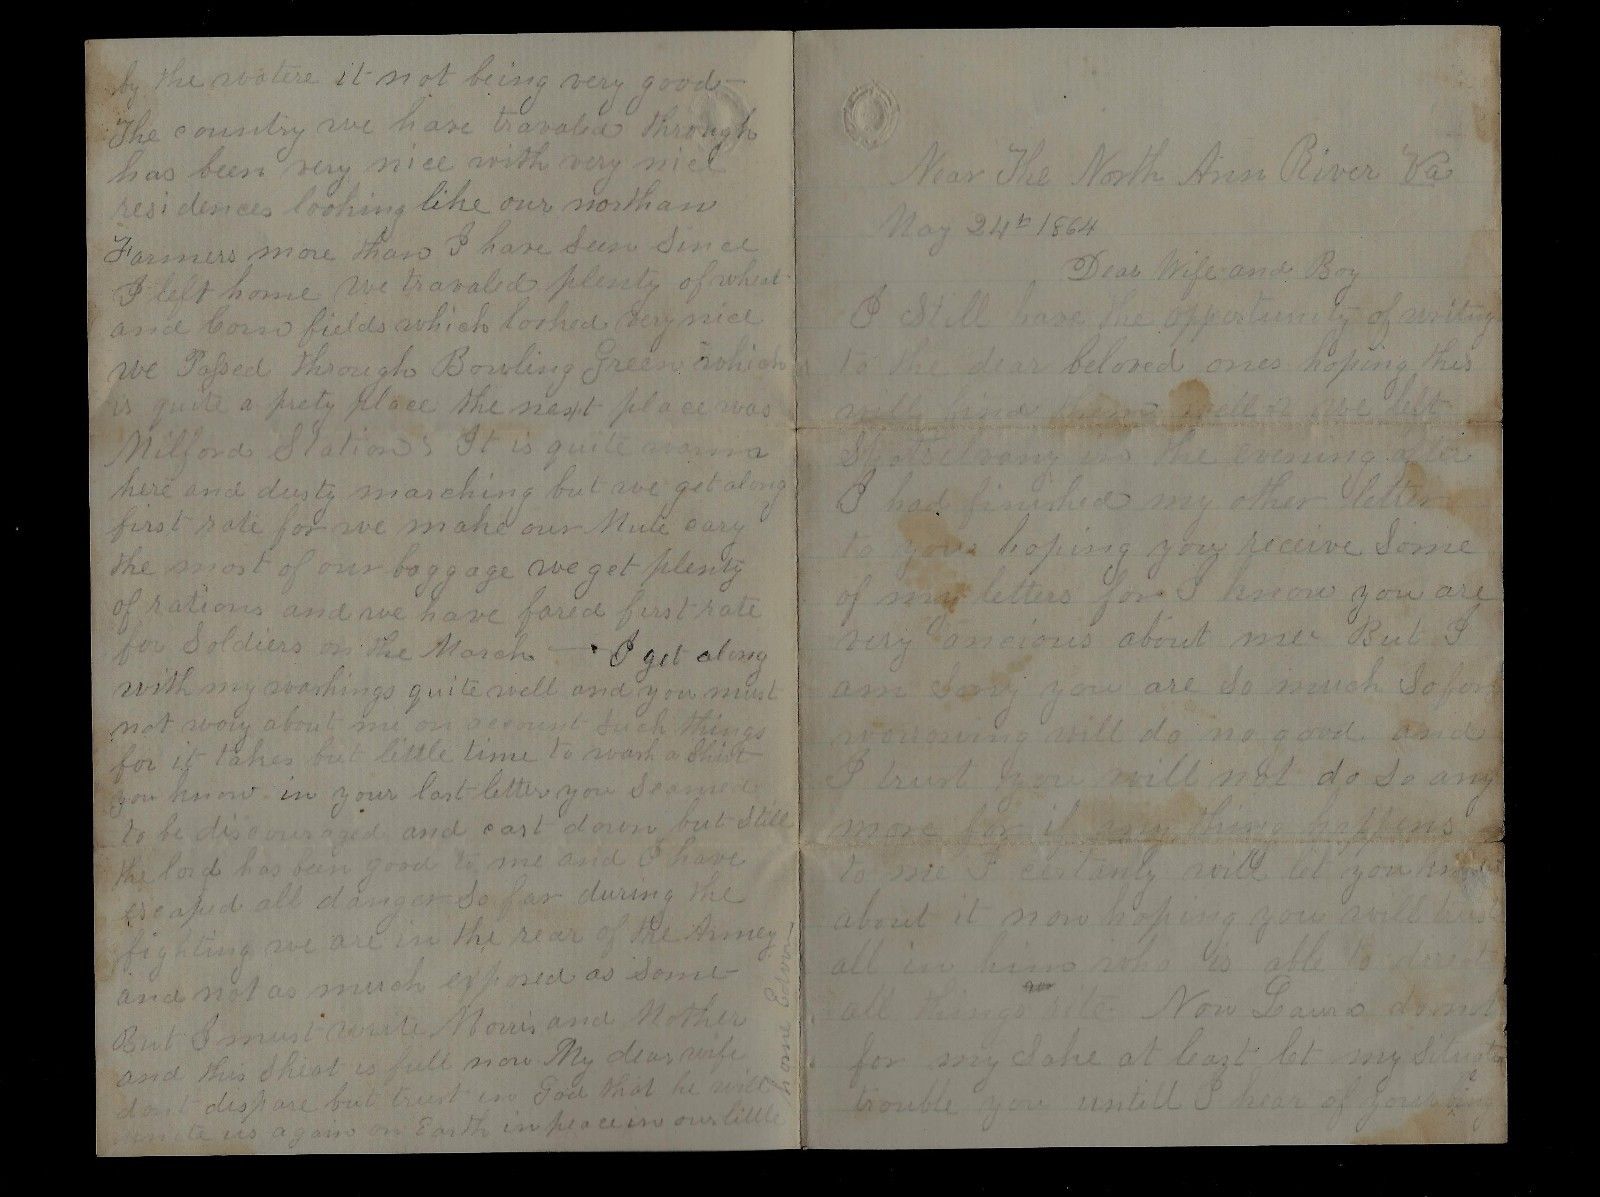 Near The North Ann River Va
May 24th 1864
Dear Wife and Boy
I Still have the oppertunity of writing
to the dear beloved ones hoping this
will find them well we left
in the evening after
I had finished my other letter
to you hoping you receive Some
of my letters for I know you are
very ancious about me But I
am Sory you are So much So for
worrowing will do no good and
I trust you will not do So any
more for if any thing happens
to me I certanly will let you know
about it now hoping you will trust
all in him who is able to
all things rite Now Laura do not
for my Sake at least let my Situation
trouble you untill I hear of your
by the watere it not being very good
The country we have travaled through
has been very nice with very nice
residences looking like our northan
Farmers more than I have Seen Since
I left home We travaled plenty of wheat
and Corn fields which looked very nice
we Passed through Bowling Green which
is quite a prety place the next place was
Milford Station It is quite warm
here and dusty marching but we get along
first rate for we make our Mule cary
the most of our baggage we get plenty
of rations and we have fared first rate
for Soldiers on the March — I get along
with my washings quite well and you must
not wory about me on account Such things
for it takes but little time to wash a Shirt
you know in your last letter you
to be discouraged and cast down but Still
the lord has been good to me and I have
escaped all danger So far during the
fighting we are in the rear of the Armey
and not as much exposed as Some
But I must write Morris and Mother
and this Sheat is full now My dear wife
dont dispare but trust in God that he will
unite us again on Earth in peace in our little
home Edwin